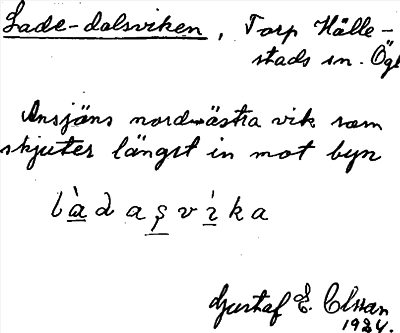 Lade-dalsviken, Torp Hälle-
stads sn. Ögl
Ansjöns nordvästra vik som
skjuter längst in mot byn
làdaṣvìka
Gustaf E. Olsson
1924.